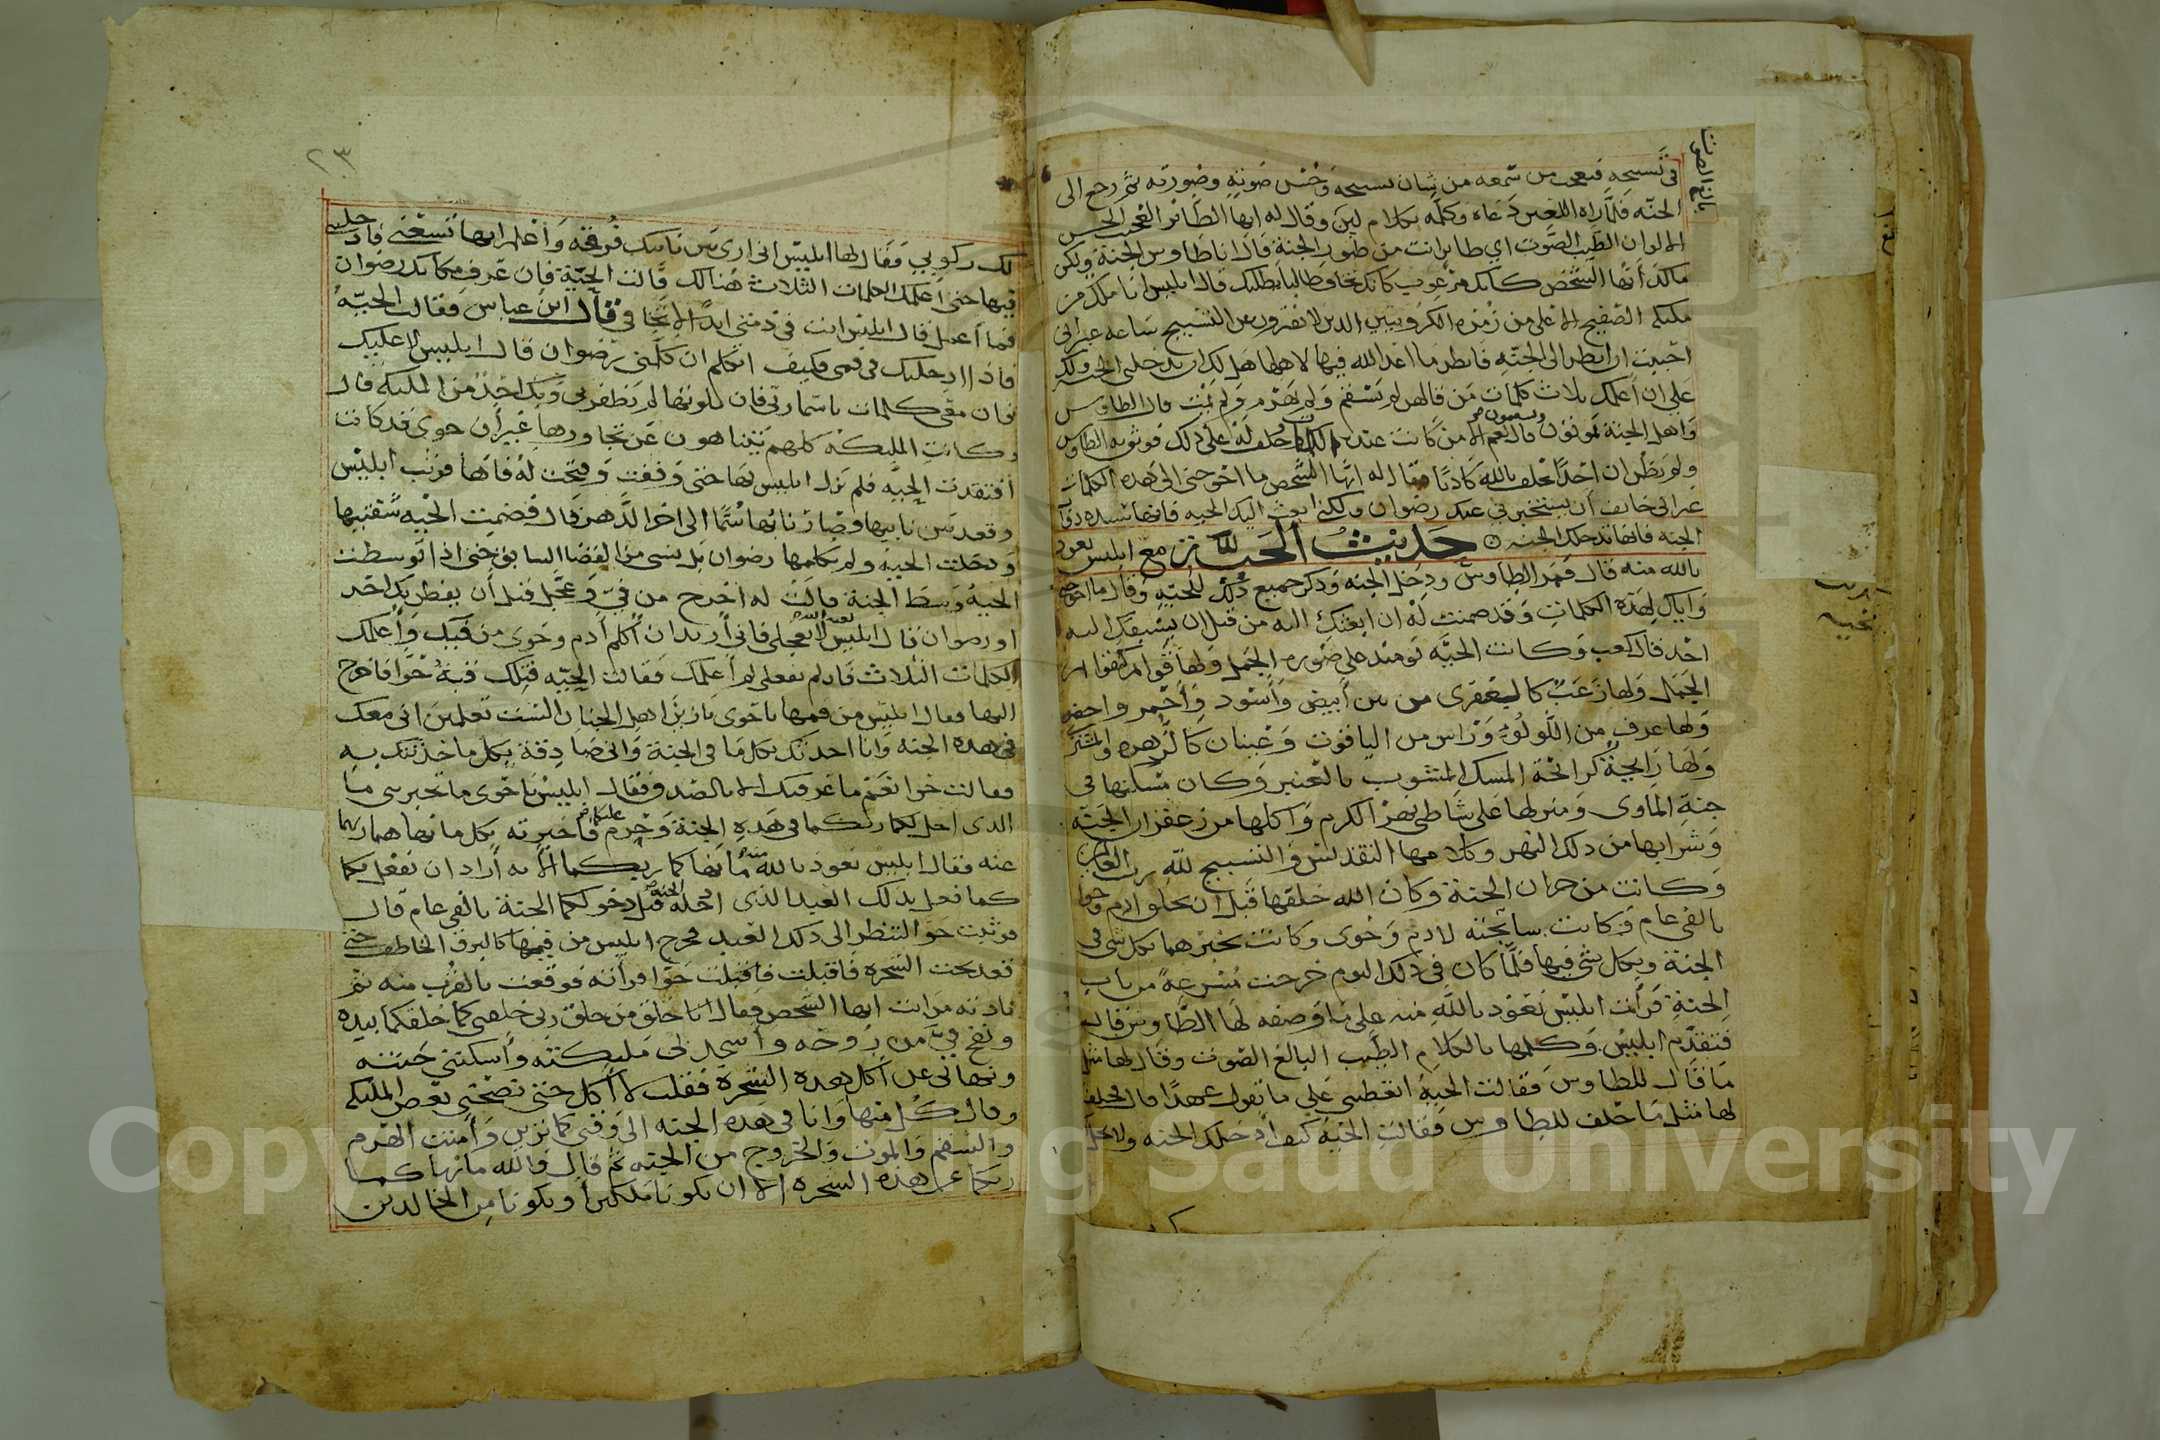 في تسبيحه فيعجب من سمعه من شان تسبيحه وحسن صوته وصورته ثم رجع الى
الجنه فلما راه اللعين دعاه وكلمه بكلام لين وقال له ايها الطائر العجيب الحسن
الالوان الطيب الصوت اي طاير انت من طيور الجنة قال انا طاوس الجنة ولكن
مالك ايها الشخص كانك مرعوب كانك تخاف طالبا يطلبك قال ابليس انا ملك من
ملئكه الصفيح الاعلى من زمره الكروبيين الذين لا يفترون عن التسبيح ساعه غير اني
احببت ان انظر الى الجنة فانظر ما اعد الله فيها لاهلها هل لك ان تدخلني الجنة ولك
على ان اعلمك ثلاث كلمات من قالهن لم يسقم ولم يهرم ولم يمت قال الطاوس
واهل الجنة يموتون قال نعم الا من كانت عنده الكلمات وحلف له على ذلك فوثق به الطاوس
ولم يظن ان احدا يحلف بالله كاذبا فقال له ايها الشخص ما احوجني الى هذه الكلمات
غير اني خايف ان يستخبرني عنك رضوان ولكن ابعث اليك الحيه فانها سيده دواب
الجنه فانها تدخلك الجنه حديث الحية مع ابليس نعوذ
بالله منه قال فمر الطاوس ودخل الجنه وذكر جميع ذلك للحية وقال ما احوجني
واياك لهذه الكلمات وقد ضمنت له ان ابعثك اليه من قبل ان يسبقك اليه
احد قال كعب وكانت الحية يومئذ على صورة الجمل ولها قوايم كقوايم
الجمل ولها زغب كالعبقري من بين ابيض واسود واحمر واخضر
ولها عرف من اللولؤ وراس من الياقوت وعينان كالزهره والمشتري
ولها رايحة كرائحة المسك المشوب بالعنبر وكان مسكنها في
جنة الماوى ومبركها على شاطئ نهر الكرم واكلها من زعفران الجنة
وشرابها من ذلك النهر وكلامها التقديس والتسبيح لله رب العالمين
وكانت من خزان الجنة وكان الله خلقها قبل ان يخلق ادم وحوا
بالفي عام وكانت سايحته لادم وحوى وكانت تخبرهما بكل شي في
الجنة وبكل شي فيها فلما كان في ذلك اليوم خرجت مسرعة من باب
الجنة فرأت ابليس نعوذ بالله منه على ما وصفه لها الطاوس قال
فتقدم ابليس وكلمها بالكلام الطيب البالغ الصوت وقال لها مثل
ما قال للطاوس فقالت الحية اتعطيني على ما تقول عهدا قال فحلف
لها مثل ما حلف للطاوس فقالت الحية كيف ادخلك الجنه ولا يحل
٢٣
لك ركوبي فقال لها ابليس اني ارى بين نابيك فرجة واعلم انها تسعني فادخليني
فيها حتى اعلمك الكلمات الثلاث هنالك قالت الحية فان عرف مكانك رضوان
فما اعمل قال ابليس انت في ذمتي ابدا لا تخافي قال ابن عباس فقالت الحية
فاذا ادخلتك في فمي فكيف اتكلم ان كلمني رضوان قال ابليس لا عليك
فان معي كلمات باسما ربي فان تلوتها لم يظفر بي وبك احد من الملئكه قال
وكانت الملئكة كلهم يتناهون عن تجاورها غير ان حوى قد كانت
افتقدت الحية فلم يزل ابليس بها حتى وقفت وفتحت له فاها فوثب ابليس
وقعد بين نابيها وصار نابها سما الى اخر الدهر قال فضمت الحيه شفتيها
ودخلت الحية ولم يكلمها رضوان بل نسي من القضا السابق حتى اذا توسطت
الحية وسط الجنة قالت له اخرج من في وعجل قبل ان يفطن بك احد
او رضوان قال ابليس لعنه الله لا تعجلي فاني اريد ان اكلم ادم وحوى من فيك واعلمك
الكلمات الثلاث فان لم تفعلي لم اعلمك فقالت الحية فتلك قبة حوا فاخرج
اليها فقال ابليس من فمها يا حوى يا زين اهل الجنان الست تعلمين اني معك
في هذه الجنه وانا احدثك بكل ما في الجنة واني صادقة بكل ما حدثتك به
فقالت حوا نعم ما عرفتك الا بالصدق فقال ابليس يا حوى ما تخبرني ما
الذي احل لكما ربكما في هذه الجنة وحرم عليكما فاخبرته بكل ما نهاهما ربهما
عنه فقال ابليس نعوذ بالله منه ما نهاكما ربكما الا انه اراد ان يفعل بكما
كما فعل بذلك العبد الذي احله الجنة قبل دخولكما الجنة بالفي عام قال
فوثبت حوا لتنظر الى ذلك العبد فخرج ابليس من فمها كالبرق الخاطف حتى
قعد تحت الشجره فاقبلت فاقبلت حوا فراته فوقفت بالقرب منه ثم
نادته من انت ايها الشخص فقال انا خلق من خلق ربي خلقني كما خلقكما بيده
ونفخ في من روحه واسجد لي مليكته واسكنني جنته
ونهاني عن اكل هذه الشجرة فقلت لا اكل حتى نصحني بعض الملئكه
وقال كل منها وانا في هذه الجنه الى وقتي كما ترين وامنت الهرم
والسقم والموت والخروج من الجنه ثم قال والله ما نهاكما
ربكما عن هذه الشجره الا ان تكونا ملكين او تكونا من الخالدين
Copyright © King Saud University